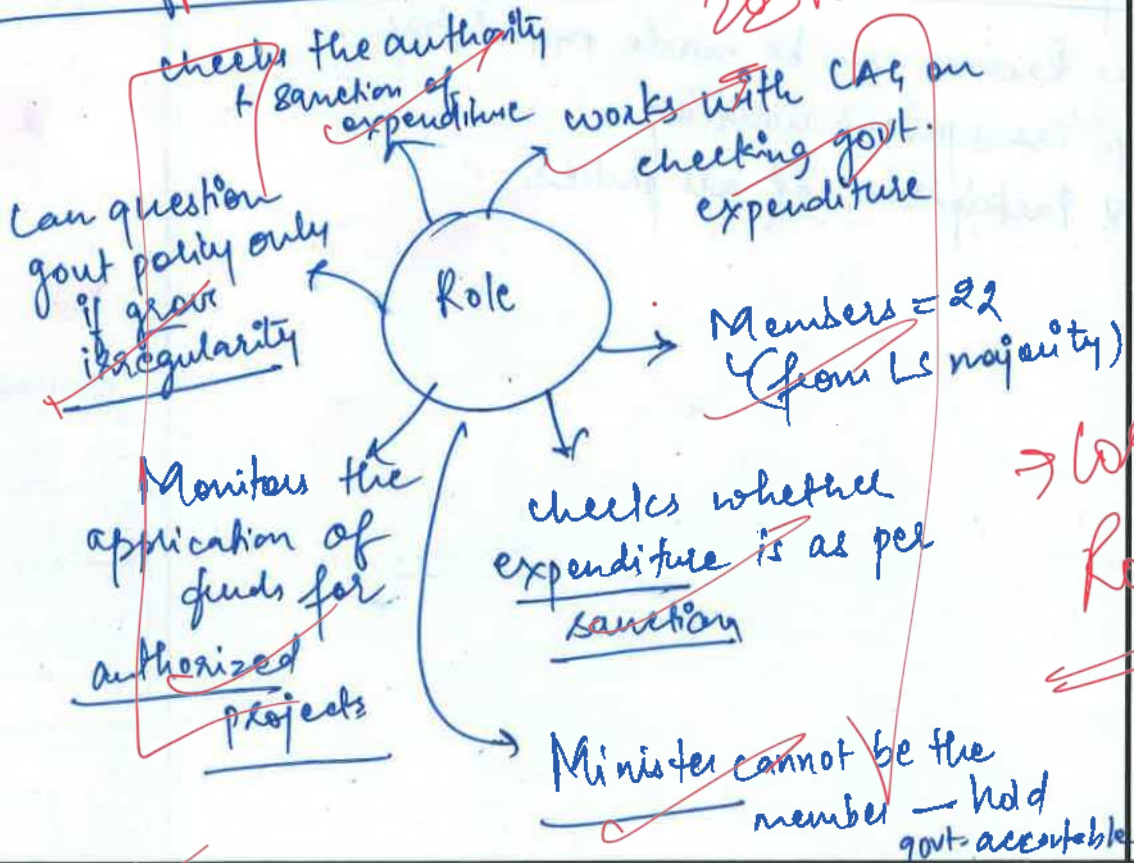 checks the authority
& sanction of
expenditure
works with CAG on
checking govt.
expenditure
Can question
govt policy only
if grave
irregularity
Role
Members = 22
(from LS majority)
Monitors the
application of
funds for
authorized
projects
checks whether
expenditure is as per
sanction
Minister cannot be the
member — hold
govt. accountable